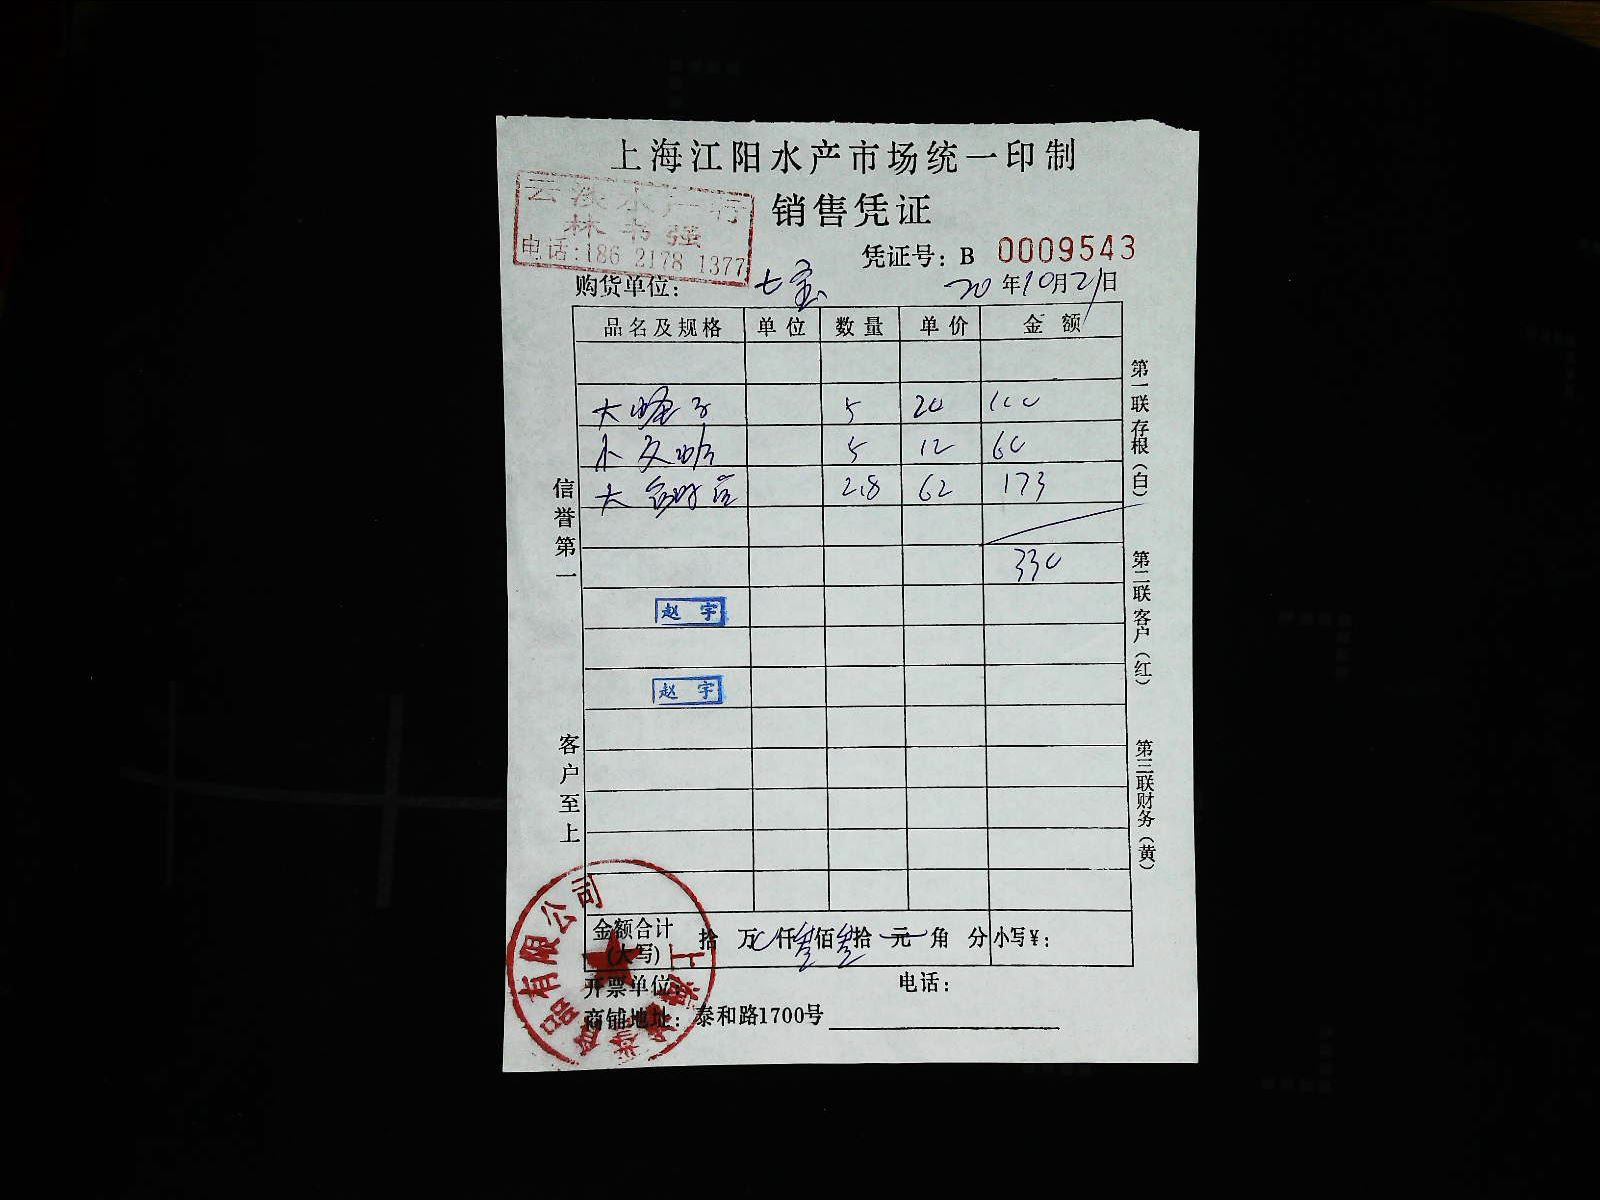 上海江阳水产市场统一印制
销售凭证
云淡水产行
林书强
电话:186 2178 1377
凭证号: B 0009543
购货单位: 七宝 20年10月21日
品名及规格 单位 数量 单价 金额
大蛏子 5 20 100
小文蛤 5 12 60
大 2.8 62 173
330
赵宇
赵宇
信誉第一
客户至上
第一联存根(白)
第二联客户(红)
第三联财务(黄)
金额合计(大写) 拾 万 仟叁佰叁拾 元 角 分 小写¥:
开票单位: 电话:
商铺地址: 泰和路1700号
有限公司